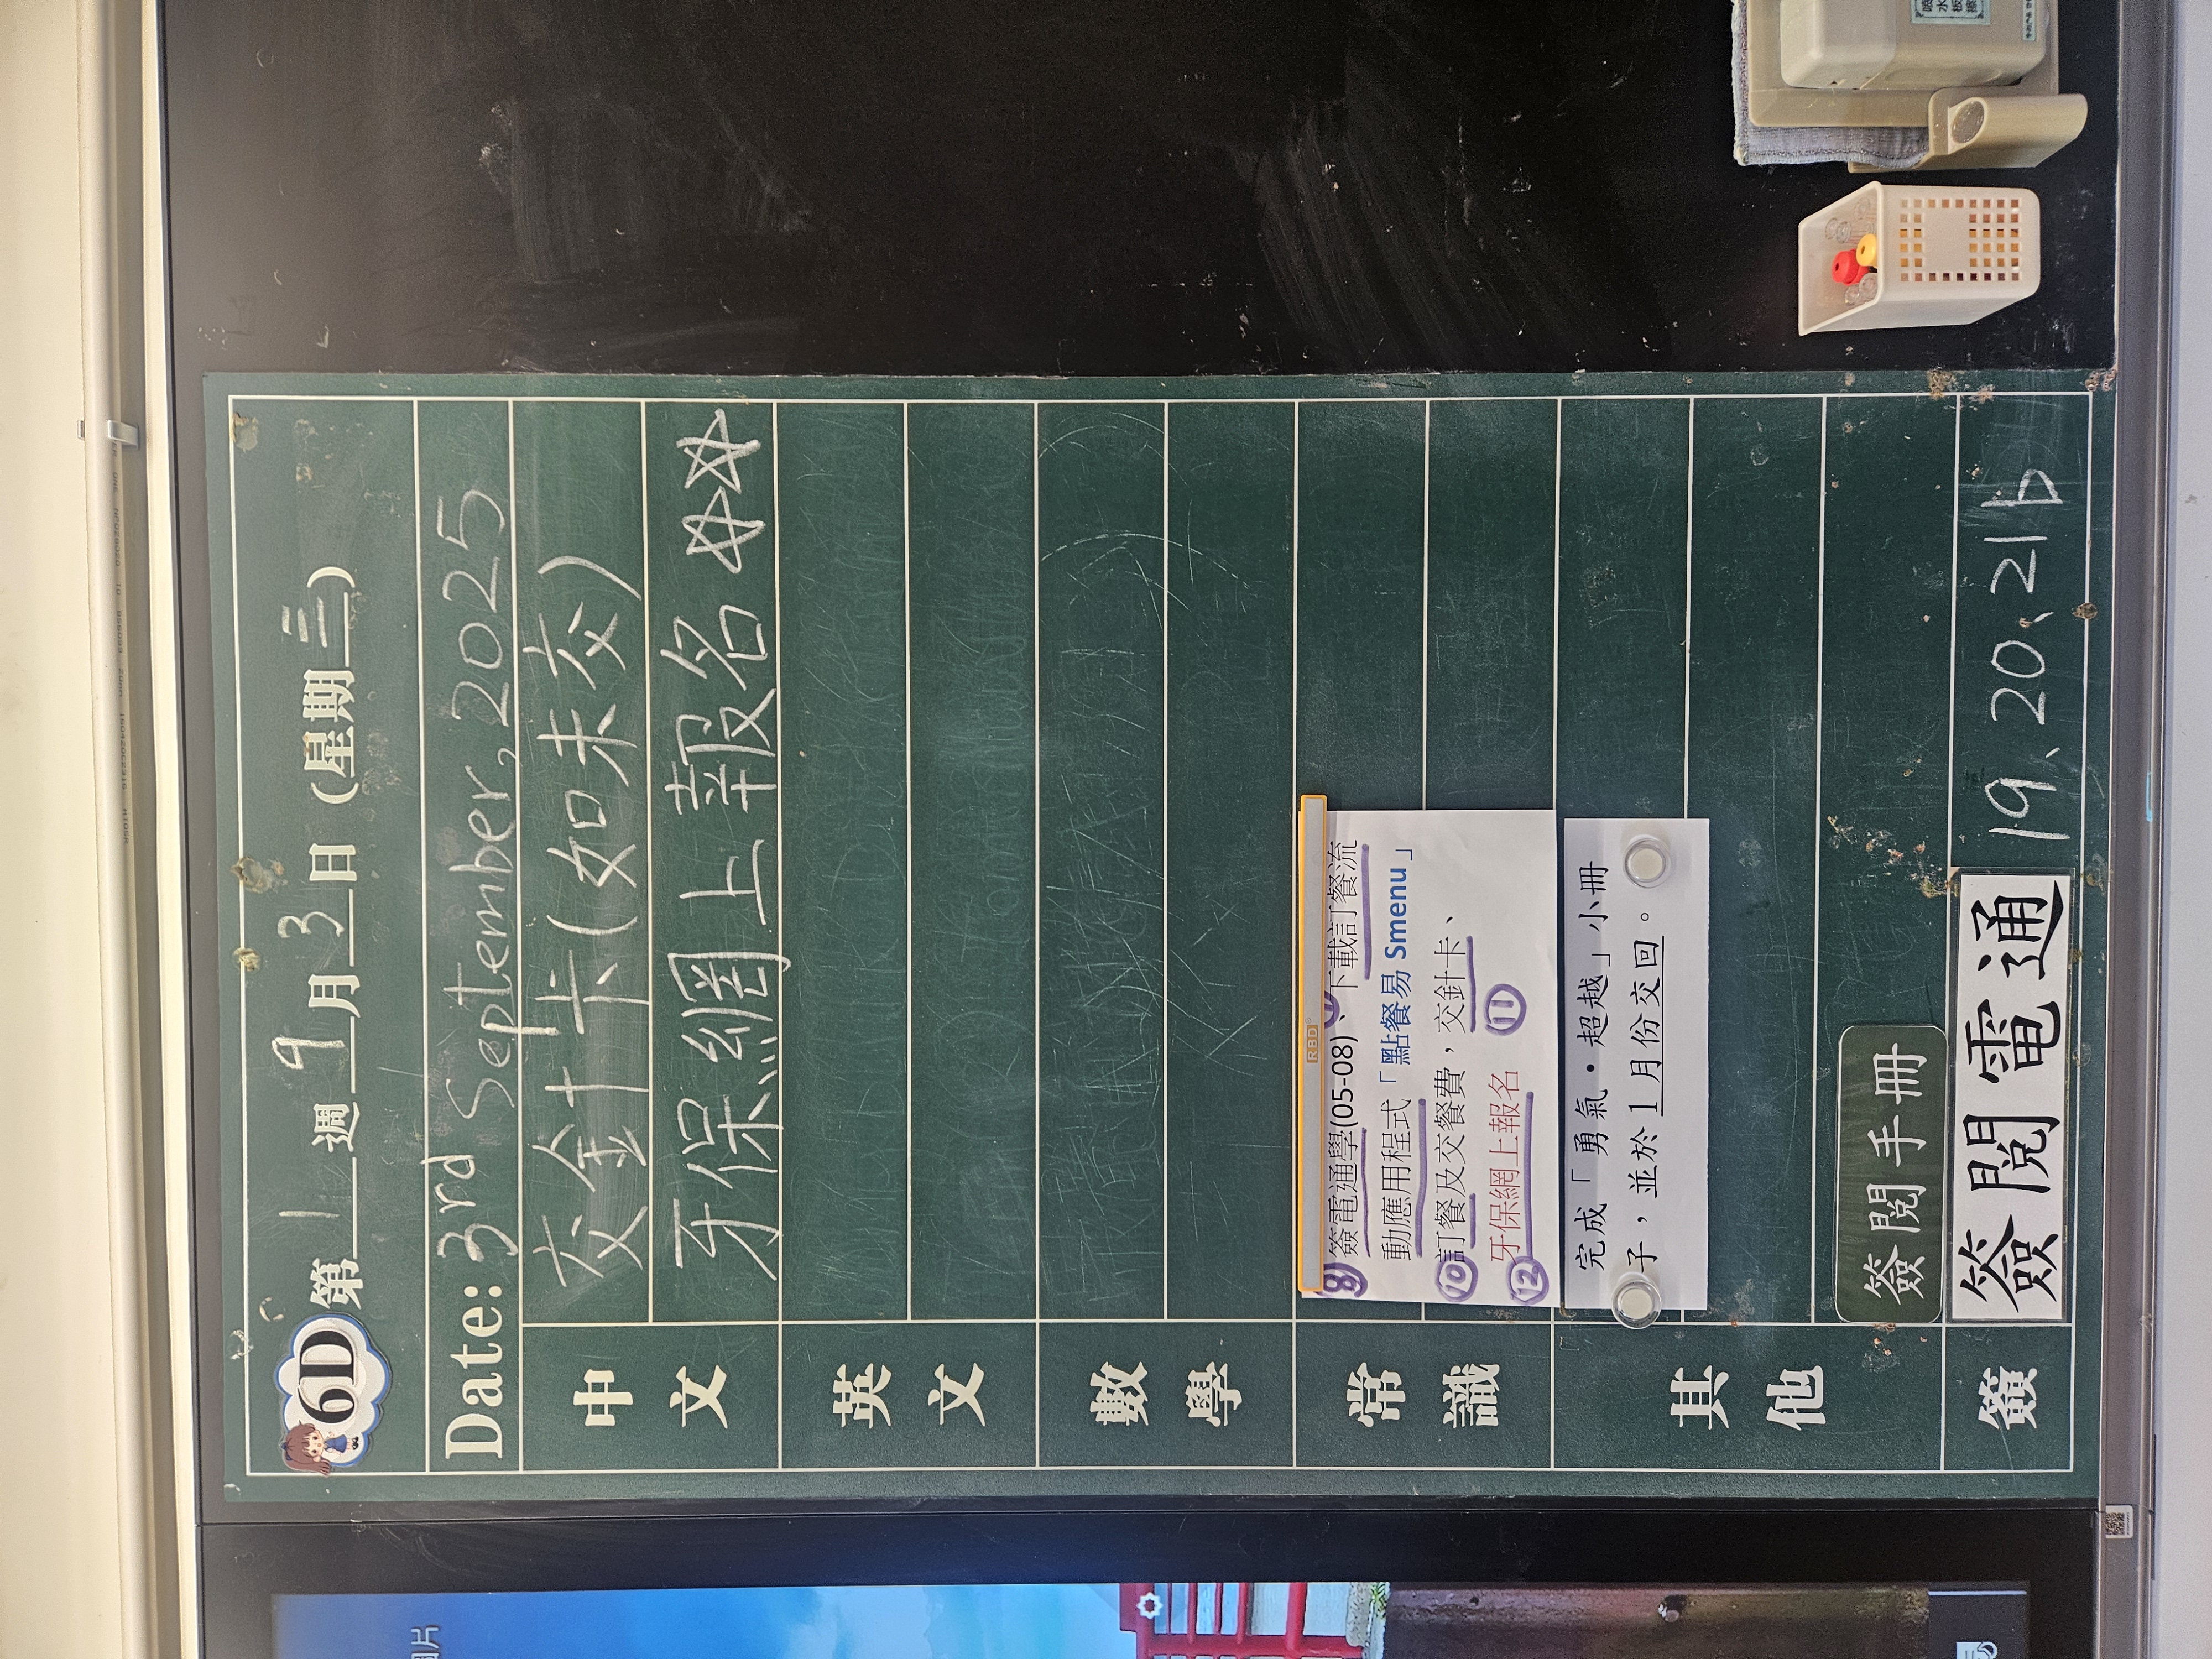 6D 第 1 週 9 月 3 日 (星期三)
Date: 3rd September, 2025
中文
交針卡(如未交)
牙保網上報名 ☆☆
英文
數學
常識
RBD
簽電通學(05-08)、下載訂餐流
動應用程式「點餐易 Smenu」
⑩訂餐及交餐費，交針卡、
⑪
⑫牙保網上報名
其他
完成「勇氣・超越」小冊
子，並於 1 月份交回。
簽閱手冊
簽
簽閱電通 19、20、21b
噴水板擦
片